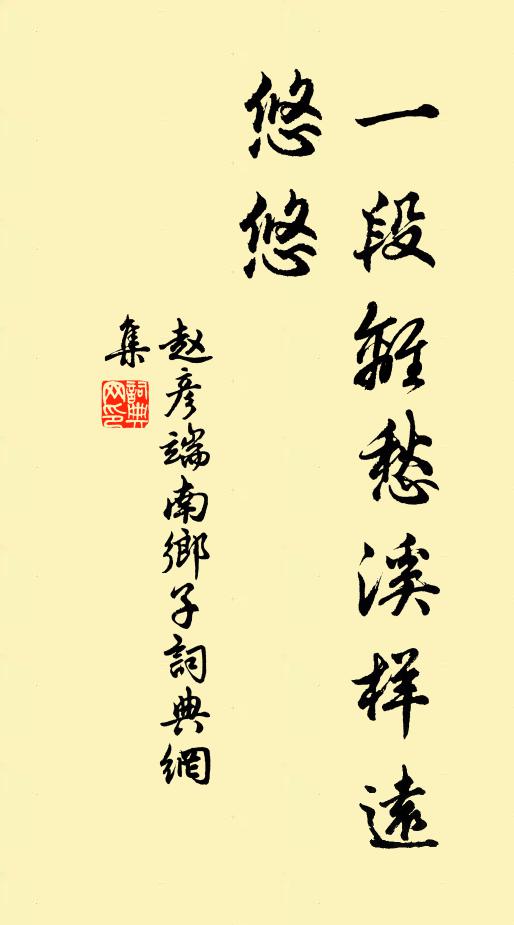 一段離愁溪样遠
悠悠
赵彦端南鄉子詞典網
集
詞典
网印